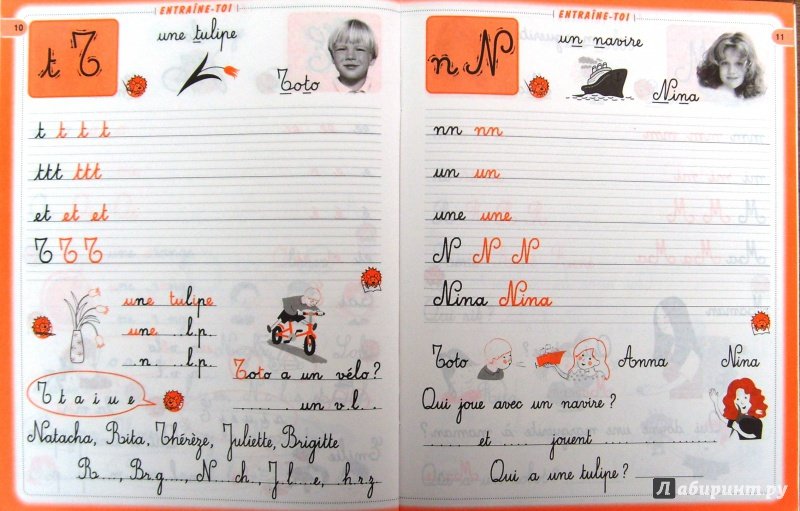 10
ENTRAÎNE-TOI
t T
une tulipe
Toto
t t t t
ttt ttt
et et et
T T T
une tulipe
une ..l.p.
.n.. .l.p.
Toto a un vélo ?
........ un v.l...
T t a i u e
Natacha, Rita, Thérèze, Juliette, Brigitte
R...., Br.g..., N..ch., J.l...e, .h.r.z.
ENTRAÎNE-TOI
11
n N
un navire
Nina
nn nn
un un
une une
N N N
Nina Nina
Toto
Anna
Nina
Qui joue avec un navire ?
........ et ........ jouent ....................
Qui a une tulipe ? ..........
Лабиринт.ру